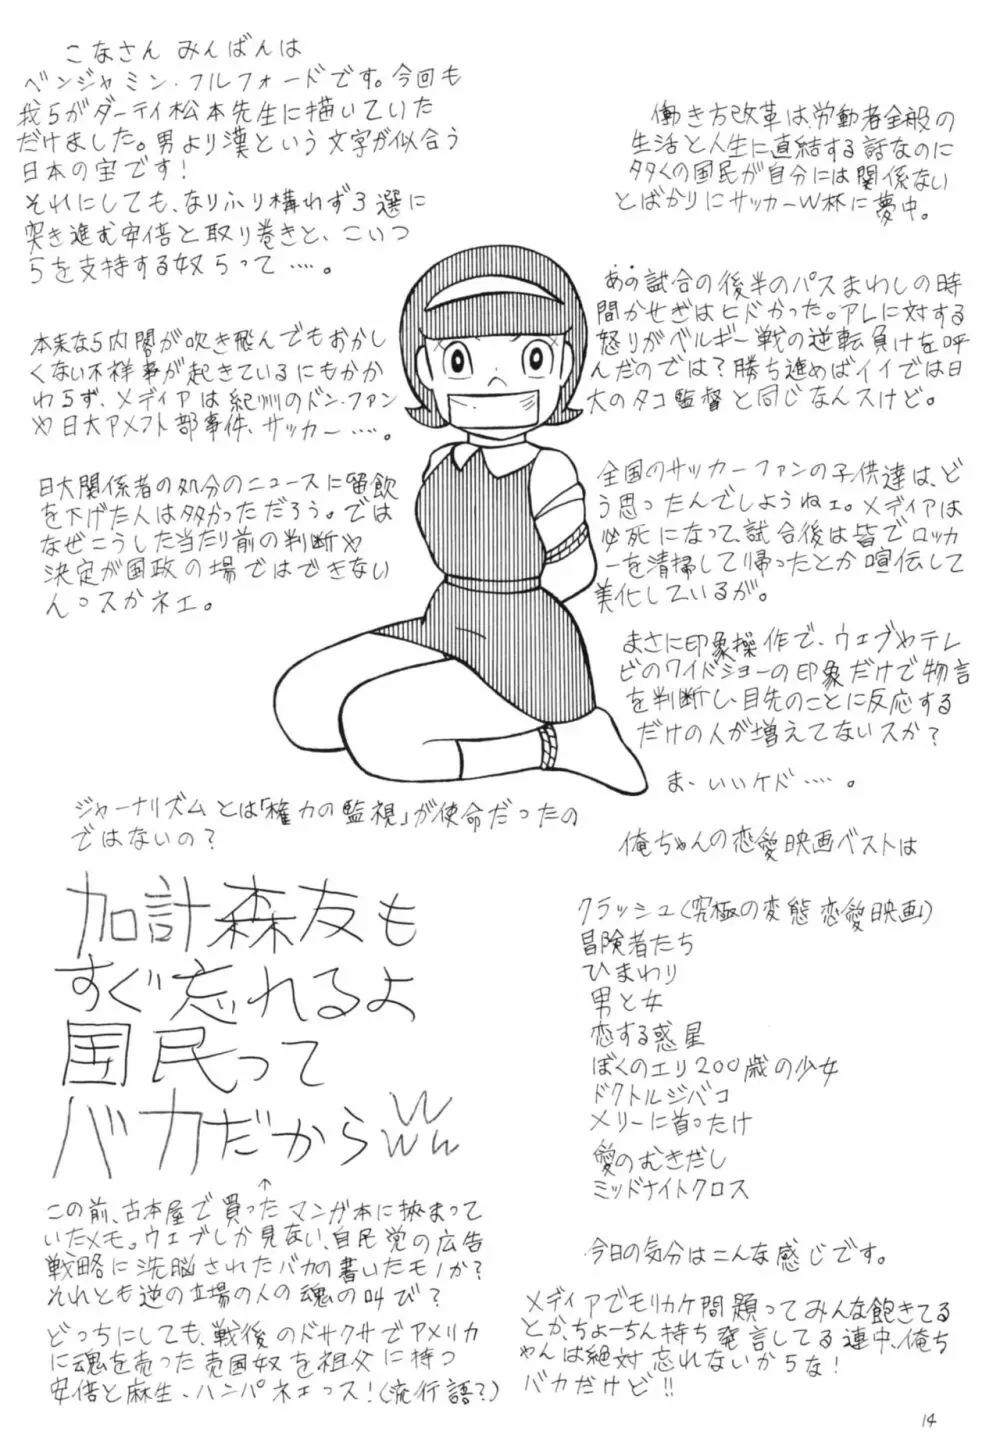 こなさん みんばんは
ベンジャミン・フルフォードです。今回も
我らがダーティ松本先生に描いていた
だけました。男より漢という文字が似合う
日本の宝です!
それにしても、なりふり構わず3選に
突き進む安倍と取り巻きと、こいつ
らを支持する奴らって……。
本来なら内閣が吹き飛んでもおかし
くない不祥事が起きているにもかか
わらず、メディアは紀州のドン・ファン
や日大アメフト部事件、サッカー……。
日大関係者の処分のニュースに留飲
を下げた人は多かっただろう。では
なぜこうした当たり前の判断や
決定が国政の場ではできない
んっスかネェ。
ジャーナリズムとは「権力の監視」が使命だったの
ではないの?
加計森友も
すぐ忘れるよ
国民って
バカだからwwww
↑
この前、古本屋で買ったマンガ本に挟まって
いたメモ。ウェブしか見ない、自民党の広告
戦略に洗脳されたバカの書いたモノか?
それとも逆の立場の人の魂の叫び?
どっちにしても、戦後のドサクサでアメリカ
に魂を売った売国奴を祖父に持つ
安倍と麻生、ハンパネェっス!(流行語?)
働き方改革は、労働者全般の
生活と人生に直結する話なのに
多くの国民が自分には関係ない
とばかりにサッカーW杯に夢中。
あの試合の後半のパスまわしの時
間かせぎはヒドかった。アレに対する
怒りがベルギー戦の逆転負けを呼
んだのでは?勝ち進めばイイでは日
大のタコ監督と同じなんスけど。
全国のサッカーファンの子供達は、ど
う思ったんでしょうねェ。メディアは
必死になって、試合後は皆でロッカ
ーを清掃して帰ったとか喧伝して
美化しているが。
まさに印象操作で、ウェブやテレ
ビのワイドショーの印象だけで物言
を判断し、目先のことに反応する
だけの人が増えてないスか?
ま、いいケド……。
俺ちゃんの恋愛映画ベストは
クラッシュ(究極の変態恋愛映画)
冒険者たち
ひまわり
男と女
恋する惑星
ぼくのエリ200歳の少女
ドクトルジバコ
メリーに首ったけ
愛のむきだし
ミッドナイトクロス
今日の気分はこんな感じです。
メディアでモリカケ問題ってみんな飽きてる
とか、ちょーちん持ち発言してる連中、俺ち
ゃんは絶対忘れないからな!
バカだけど!!
14